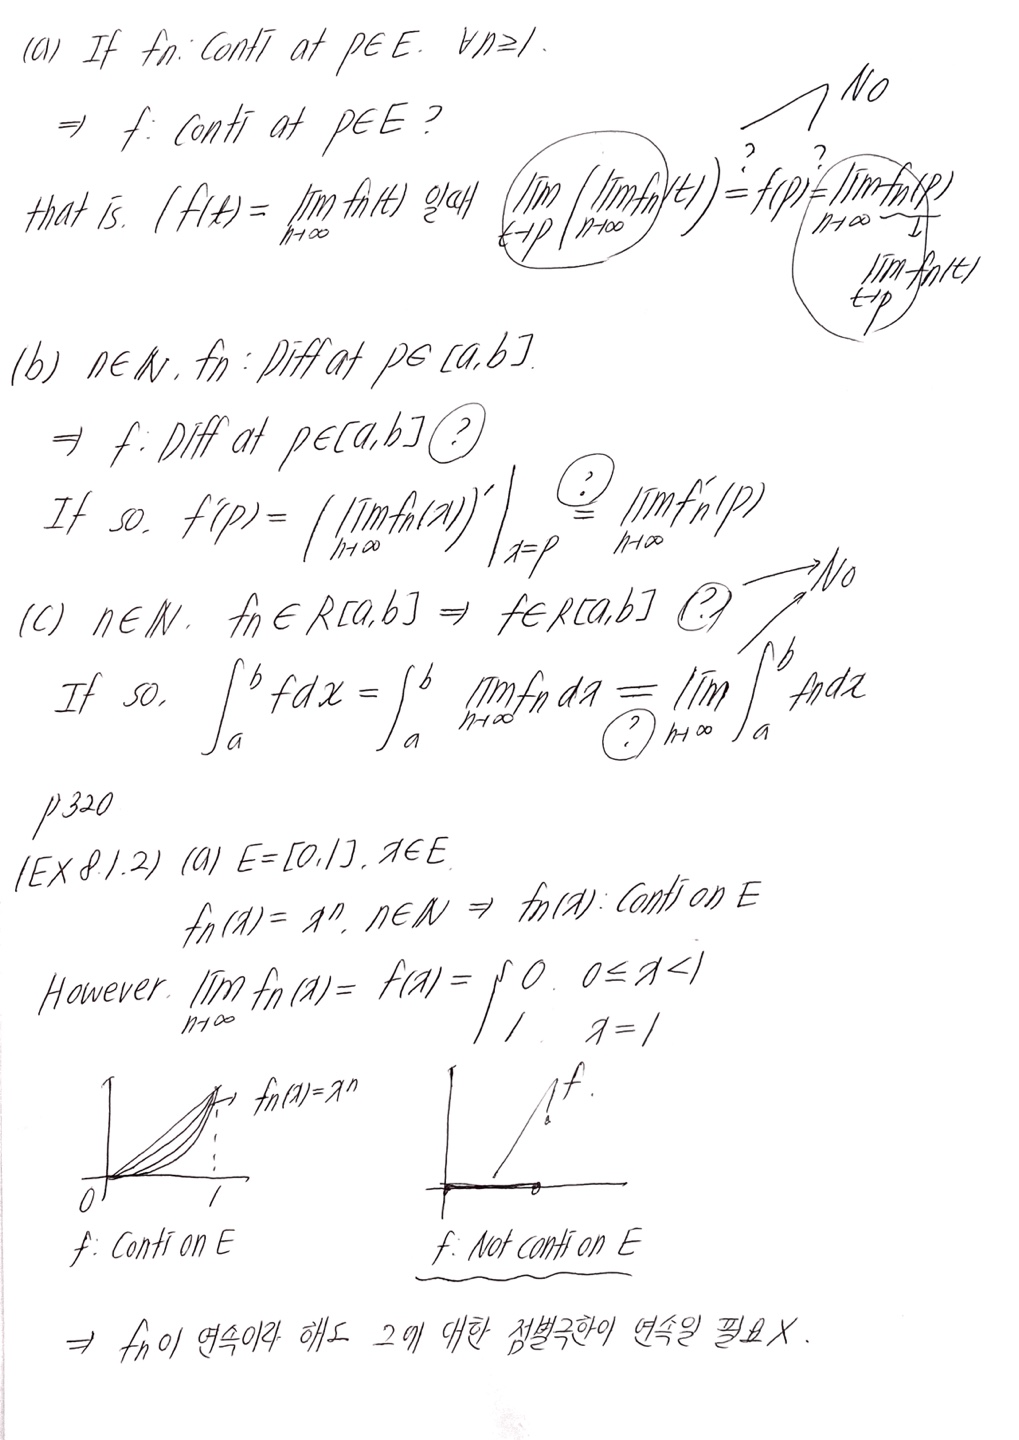 (a) If fn: Conti at p∈E. ∀n≥1.
No
⇒ f: Conti at p∈E ?
that is. (f(t) = lim n→∞ fn(t) 일때 lim t→p (lim n→∞ fn(t)) =? f(p) =? lim n→∞ fn(p)
lim t→p fn(t)
(b) n∈ℕ. fn : Diff at p∈[a,b].
⇒ f: Diff at p∈[a,b] ?
If so. f'(p) = (lim n→∞ fn(x))' | x=p =? lim n→∞ fn'(p)
No
(c) n∈ℕ. fn∈R[a,b] ⇒ f∈R[a,b] ?
If so. ∫a^b f dx = ∫a^b lim n→∞ fn dx =? lim n→∞ ∫a^b fn dx
p320
(EX 8.1.2) (a) E=[0,1]. x∈E.
fn(x) = x^n. n∈ℕ ⇒ fn(x): Conti on E
However. lim n→∞ fn(x) = f(x) = { 0. 0≤x<1
1 x=1
fn(x)=x^n f.
0 1
f: Conti on E f: Not conti on E
⇒ fn이 연속이라 해도 그에 대한 점별극한이 연속일 필요 X.